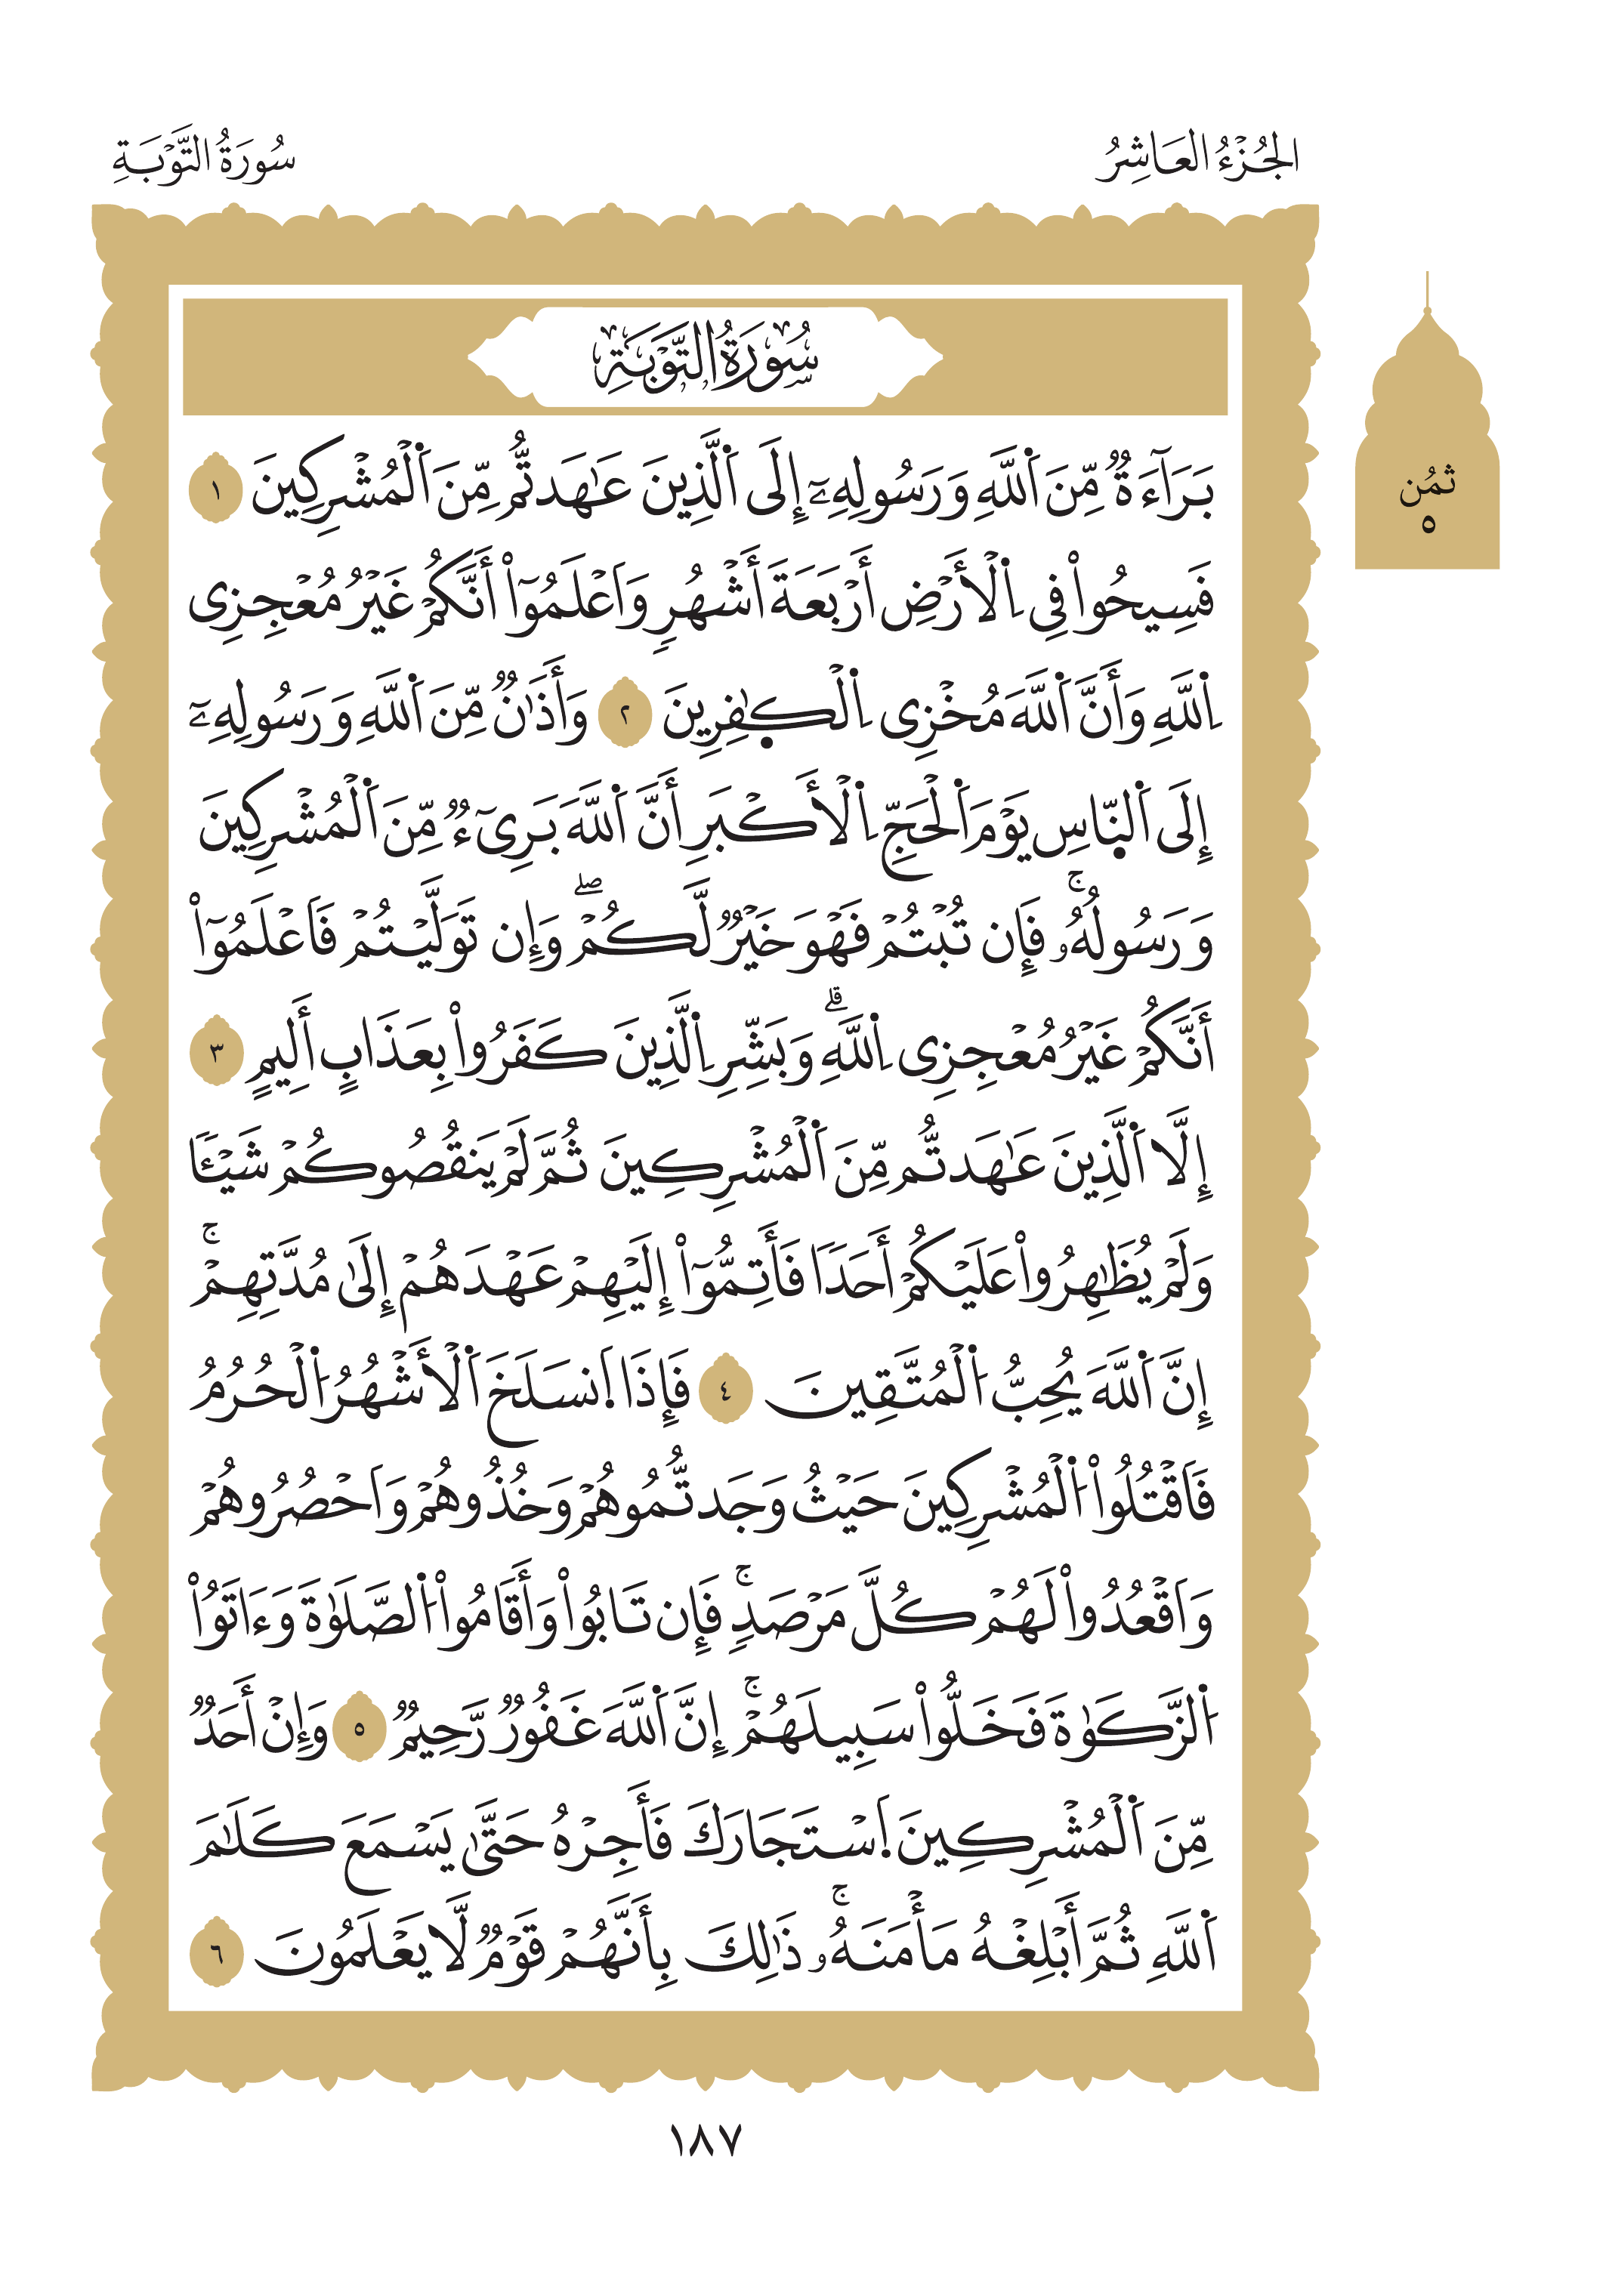 الجُزْءُ العَاشِرُ
سُورَةُ التَّوْبَةِ
ثمُن
٥
سُورَةُ التَّوْبَةِ
بَرَآءَةٌ مِّنَ اَ۬للَّهِ وَرَسُولِهِۦٓ إِلَى اَ۬لَّذِينَ عَٰهَدتُّم مِّنَ اَ۬لْمُشْرِكِينَ ١
فَسِيحُواْ فِى اِ۬لْأَرْضِ أَرْبَعَةَ أَشْهُرٍ وَاَعْلَمُوٓاْ أَنَّكُمْ غَيْرُ مُعْجِزِى
اِ۬للَّهِ وَأَنَّ اَ۬للَّهَ مُخْزِى اِ۬لْكٰٜفِرِينَ ٢ وَأَذَٰنٌ مِّنَ اَ۬للَّهِ وَرَسُولِهِۦٓ
إِلَى اَ۬لنّٜاسِ يَوْمَ اَ۬لْحَجِّ اِ۬لْأَكْبَرِ أَنَّ اَ۬للَّهَ بَرِىٓءٌ مِّنَ اَ۬لْمُشْرِكِينَ
وَرَسُولُهُۥۚ فَإِن تُبْتُمْ فَهْوَ خَيْرٌ لَّكُمْۖ وَإِن تَوَلَّيْتُمْ فَاَعْلَمُوٓاْ
أَنَّكُمْ غَيْرُ مُعْجِزِى اِ۬للَّهِۗ وَبَشِّرِ اِ۬لَّذِينَ كَفَرُواْ بِعَذَابٍ أَلِيمٍ ٣
إِلَّا اَ۬لَّذِينَ عَٰهَدتُّم مِّنَ اَ۬لْمُشْرِكِينَ ثُمَّ لَمْ يَنقُصُوكُمْ شَيْـًٔا
وَلَمْ يُظَٰهِرُواْ عَلَيْكُمْ أَحَدًا فَأَتِمُّوٓاْ إِلَيْهِمْ عَهْدَهُمْ إِلَىٰ مُدَّتِهِمْۚ
إِنَّ اَ۬للَّهَ يُحِبُّ اُ۬لْمُتَّقِينَ ٤ فَإِذَا اَ۪نسَلَخَ اَ۬لْأَشْهُرُ اُ۬لْحُرُمُ
فَاَقْتُلُواْ اُ۬لْمُشْرِكِينَ حَيْثُ وَجَدتُّمُوهُمْ وَخُذُوهُمْ وَاَحْصُرُوهُمْ
وَاَقْعُدُواْ لَهُمْ كُلَّ مَرْصَدٍۚ فَإِن تَابُواْ وَأَقَامُواْ اُ۬لصَّلَوٰةَ وَءَاتَوُاْ
اُ۬لزَّكَوٰةَ فَخَلُّواْ سَبِيلَهُمْۚ إِنَّ اَ۬للَّهَ غَفُورٌ رَّحِيمٌ ٥ وَإِنْ أَحَدٌ
مِّنَ اَ۬لْمُشْرِكِينَ اَ۪سْتَجَارَكَ فَأَجِرْهُ حَتَّىٰ يَسْمَعَ كَلَٰمَ
اَ۬للَّهِ ثُمَّ أَبْلِغْهُ مَأْمَنَهُۥۚ ذَٰلِكَ بِأَنَّهُمْ قَوْمٌ لَّا يَعْلَمُونَ ٦
١٨٧